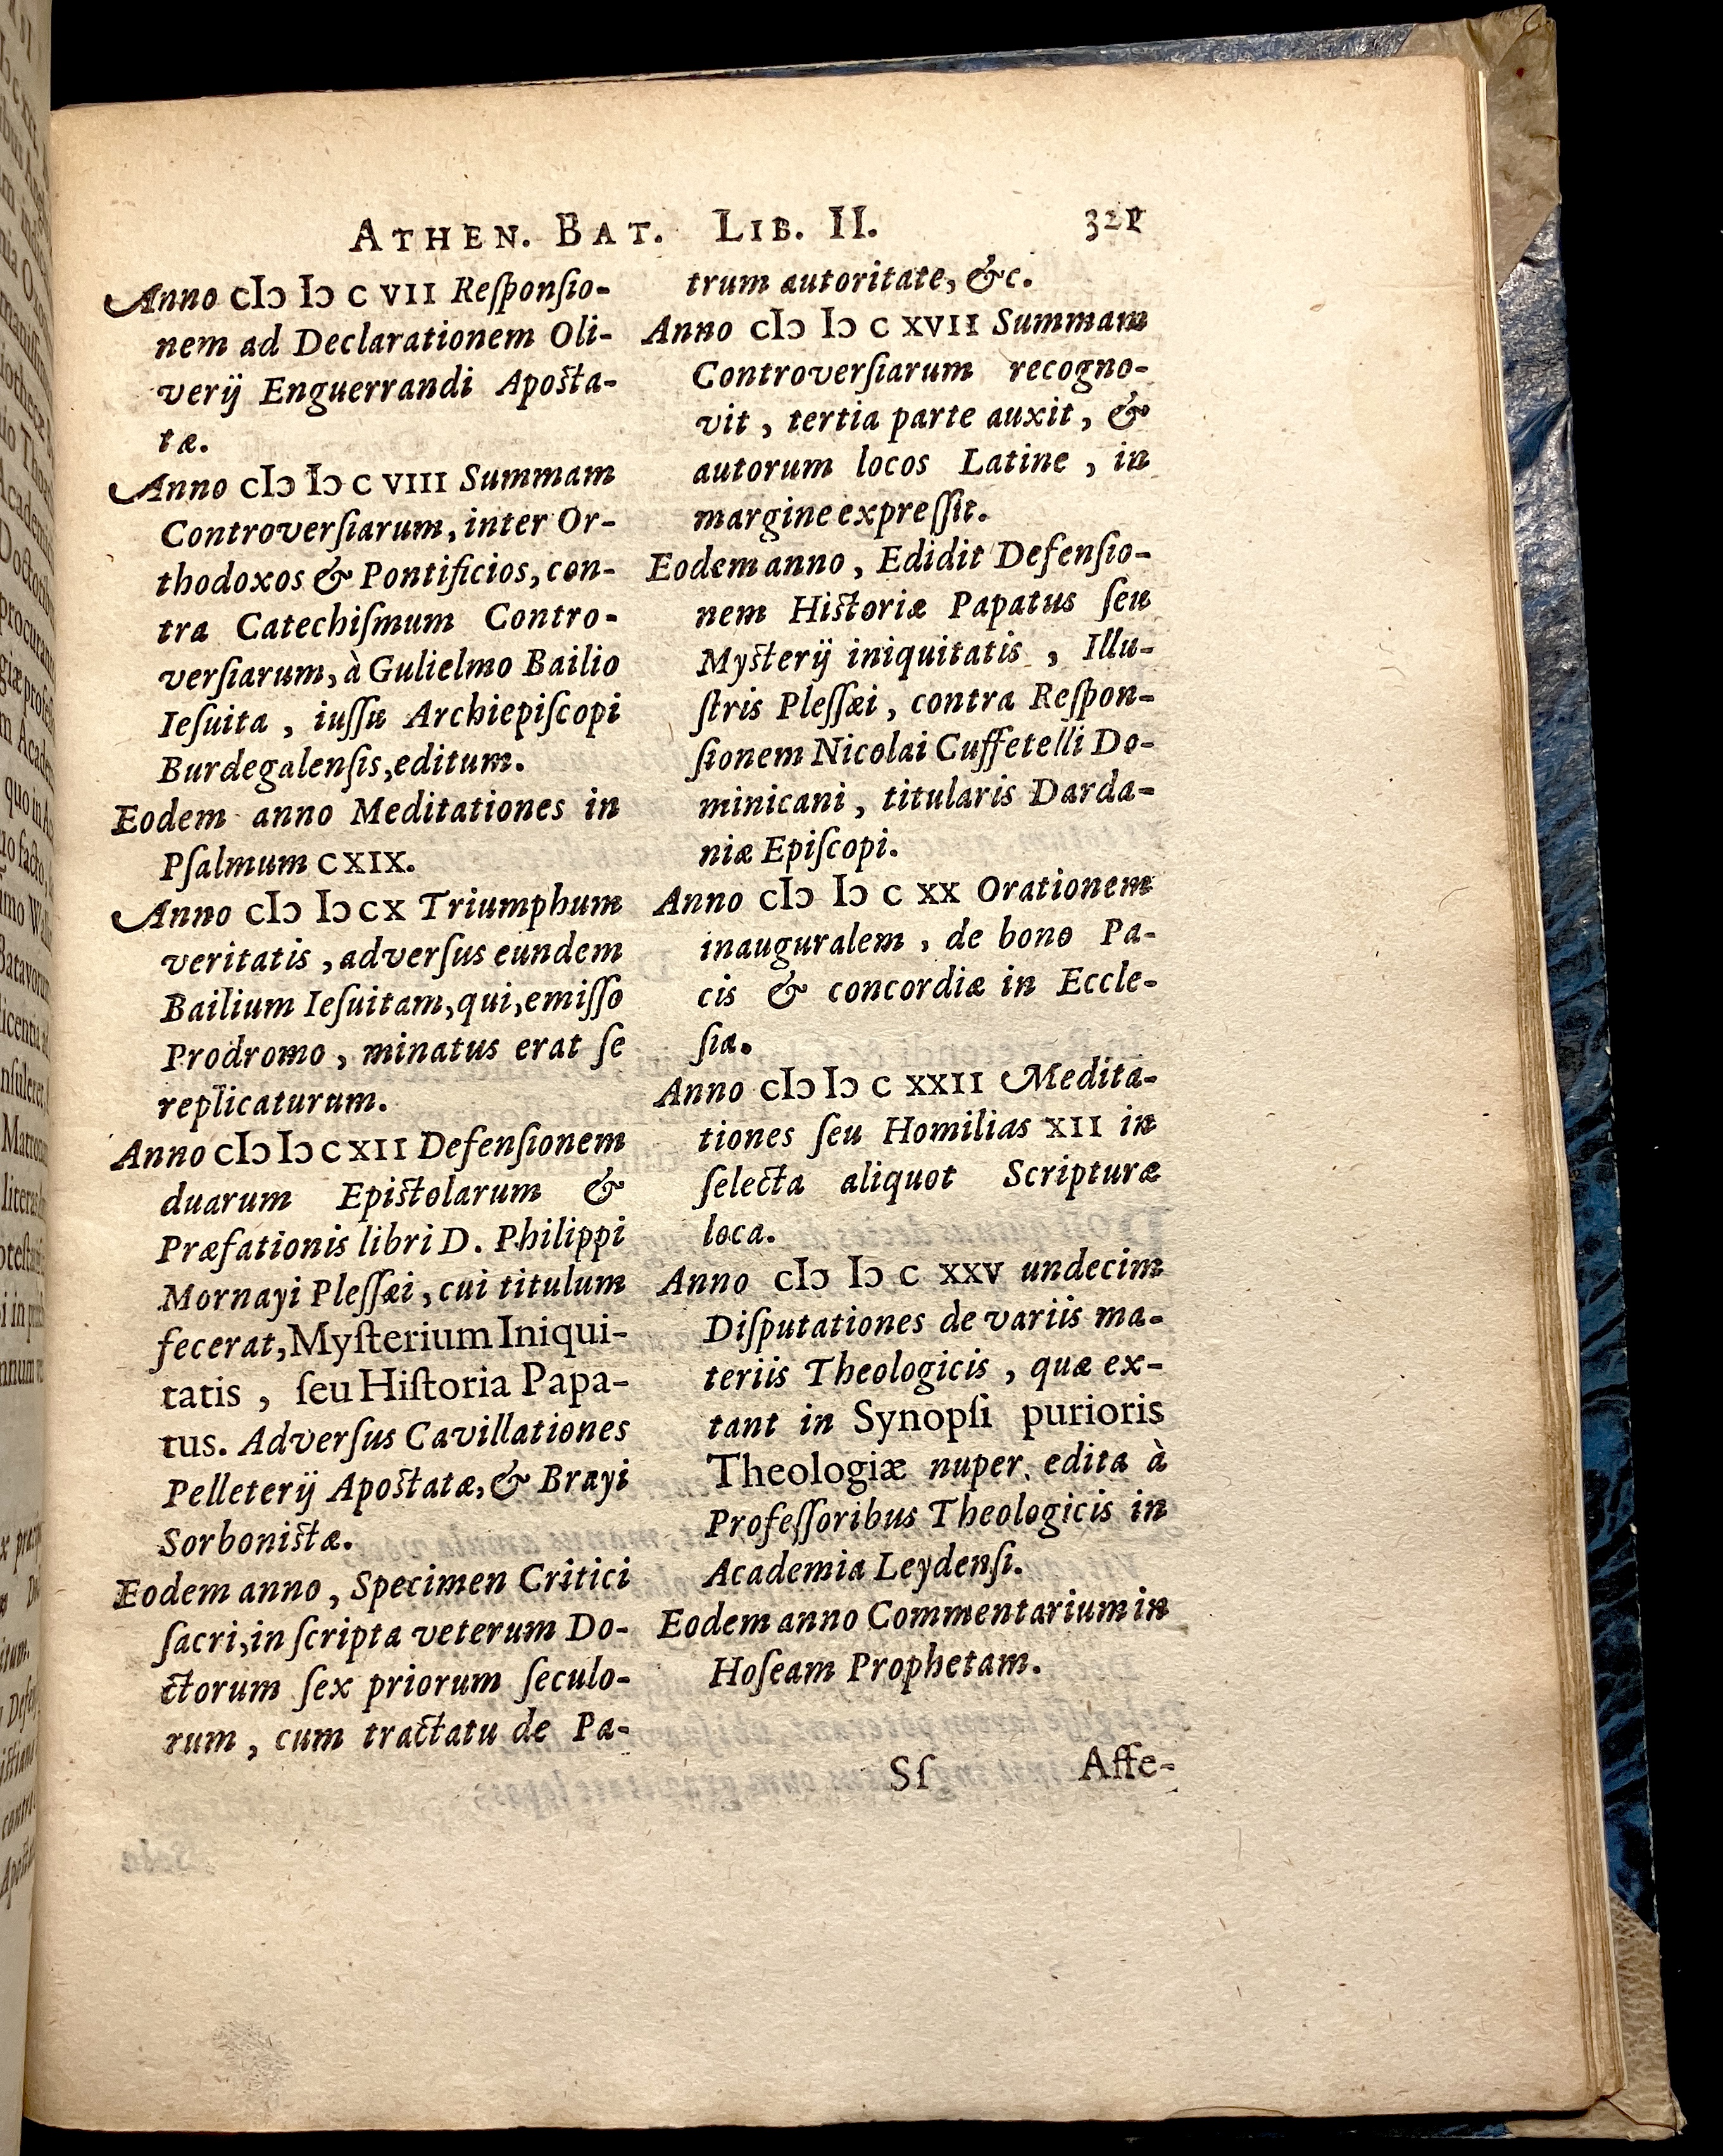 ATHEN. BAT. LIB. II. 321
Anno cIɔ Iɔ c VII Reſponſio-
nem ad Declarationem Oli-
verij Enguerrandi Apoſta-
tæ.
Anno cIɔ Iɔ c VIII Summam
Controverſiarum, inter Or-
thodoxos & Pontificios, con-
tra Catechiſmum Contro-
verſiarum, à Gulielmo Bailio
Ieſuita, iuſſu Archiepiſcopi
Burdegalenſis, editum.
Eodem anno Meditationes in
Pſalmum CXIX.
Anno cIɔ Iɔ c X Triumphum
veritatis, adverſus eundem
Bailium Ieſuitam, qui, emiſſo
Prodromo, minatus erat ſe
replicaturum.
Anno cIɔ Iɔ c XII Defenſionem
duarum Epiſtolarum &
Præfationis libri D. Philippi
Mornayi Pleſſæi, cui titulum
fecerat, Myſterium Iniqui-
tatis, ſeu Hiſtoria Papa-
tus. Adverſus Cavillationes
Pelleterij Apoſtatæ, & Brayi
Sorboniſtæ.
Eodem anno, Specimen Critici
ſacri, in ſcripta veterum Do-
ctorum ſex priorum ſeculo-
rum, cum tractatu de Pa-
trum autoritate, &c.
Anno cIɔ Iɔ c XVII Summam
Controverſiarum recogno-
vit, tertia parte auxit, &
autorum locos Latine, in
margine expreſſit.
Eodem anno, Edidit Defenſio-
nem Hiſtoriæ Papatus ſeu
Myſterij iniquitatis, Illu-
ſtris Pleſſæi, contra Reſpon-
ſionem Nicolai Cuffetelli Do-
minicani, titularis Darda-
niæ Epiſcopi.
Anno cIɔ Iɔ c XX Orationem
inauguralem, de bono Pa-
cis & concordiæ in Eccle-
ſia.
Anno cIɔ Iɔ c XXII Medita-
tiones ſeu Homilias XII in
ſelecta aliquot Scripturæ
loca.
Anno cIɔ Iɔ c XXV undecim
Diſputationes de variis ma-
teriis Theologicis, quæ ex-
tant in Synopſi purioris
Theologiæ nuper. edita à
Profeſſoribus Theologicis in
Academia Leydenſi.
Eodem anno Commentarium in
Hoſeam Prophetam.
Sſ Aſſe-